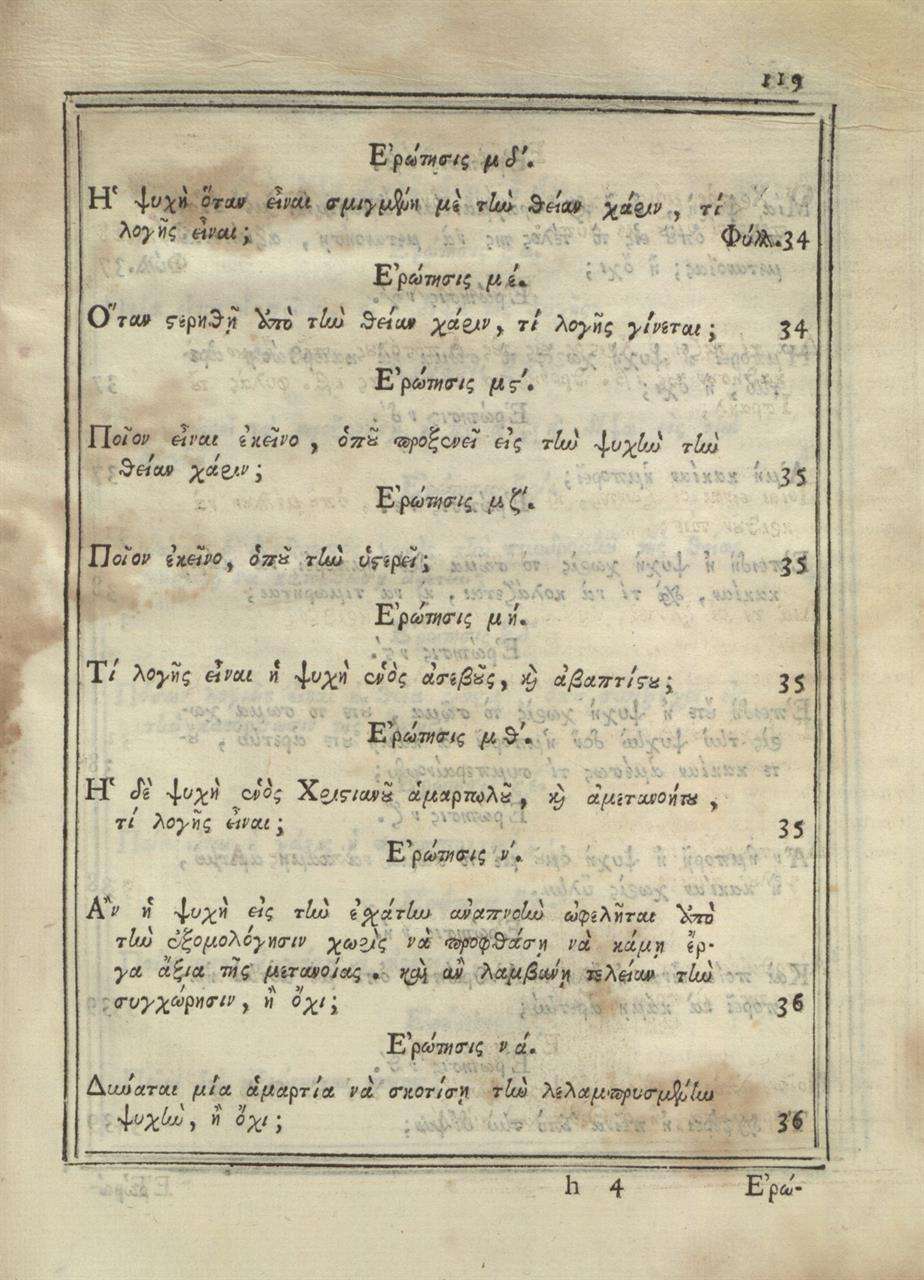 119
Ἐρώτησις μδ´.
Ἡ ψυχὴ ὅταν εἶναι σμιγμένη μὲ τὴν θείαν χάριν, τί
λογῆς εἶναι; Φύλλ. 34
Ἐρώτησις μέ.
Ὅταν στερηθῇ ἀπὸ τὴν θείαν χάριν, τί λογῆς γίνεται; 34
Ἐρώτησις μϛ´.
Ποῖον εἶναι ἐκεῖνο, ὁποῦ προξενεῖ εἰς τὴν ψυχὴν τὴν
θείαν χάριν; 35
Ἐρώτησις μζ´.
Ποῖον ἐκεῖνο, ὁποῦ τὴν ὑστερεῖ; 35
Ἐρώτησις μή.
Τί λογῆς εἶναι ἡ ψυχὴ ἑνὸς ἀσεβοῦς, καὶ ἀβαπτίστου; 35
Ἐρώτησις μθ´.
Ἡ δὲ ψυχὴ ἑνὸς Χριστιανοῦ ἁμαρτωλοῦ, καὶ ἀμετανοήτου,
τί λογῆς εἶναι; 35
Ἐρώτησις ν´.
Ἂν ἡ ψυχὴ εἰς τὴν ἐσχάτην ἀναπνοὴν ὠφελῆται ἀπὸ
τὴν ἐξομολόγησιν χωρὶς νὰ προφθάσῃ νὰ κάμῃ ἔρ-
γα ἄξια τῆς μετανοίας. καὶ ἂν λαμβάνῃ τελείαν τὴν
συγχώρησιν, ἢ ὄχι; 36
Ἐρώτησις νά.
Δύναται μία ἁμαρτία νὰ σκοτίσῃ τὴν λελαμπρυσμένην
ψυχὴν, ἢ ὄχι; 36
h 4 Ἐρώ-